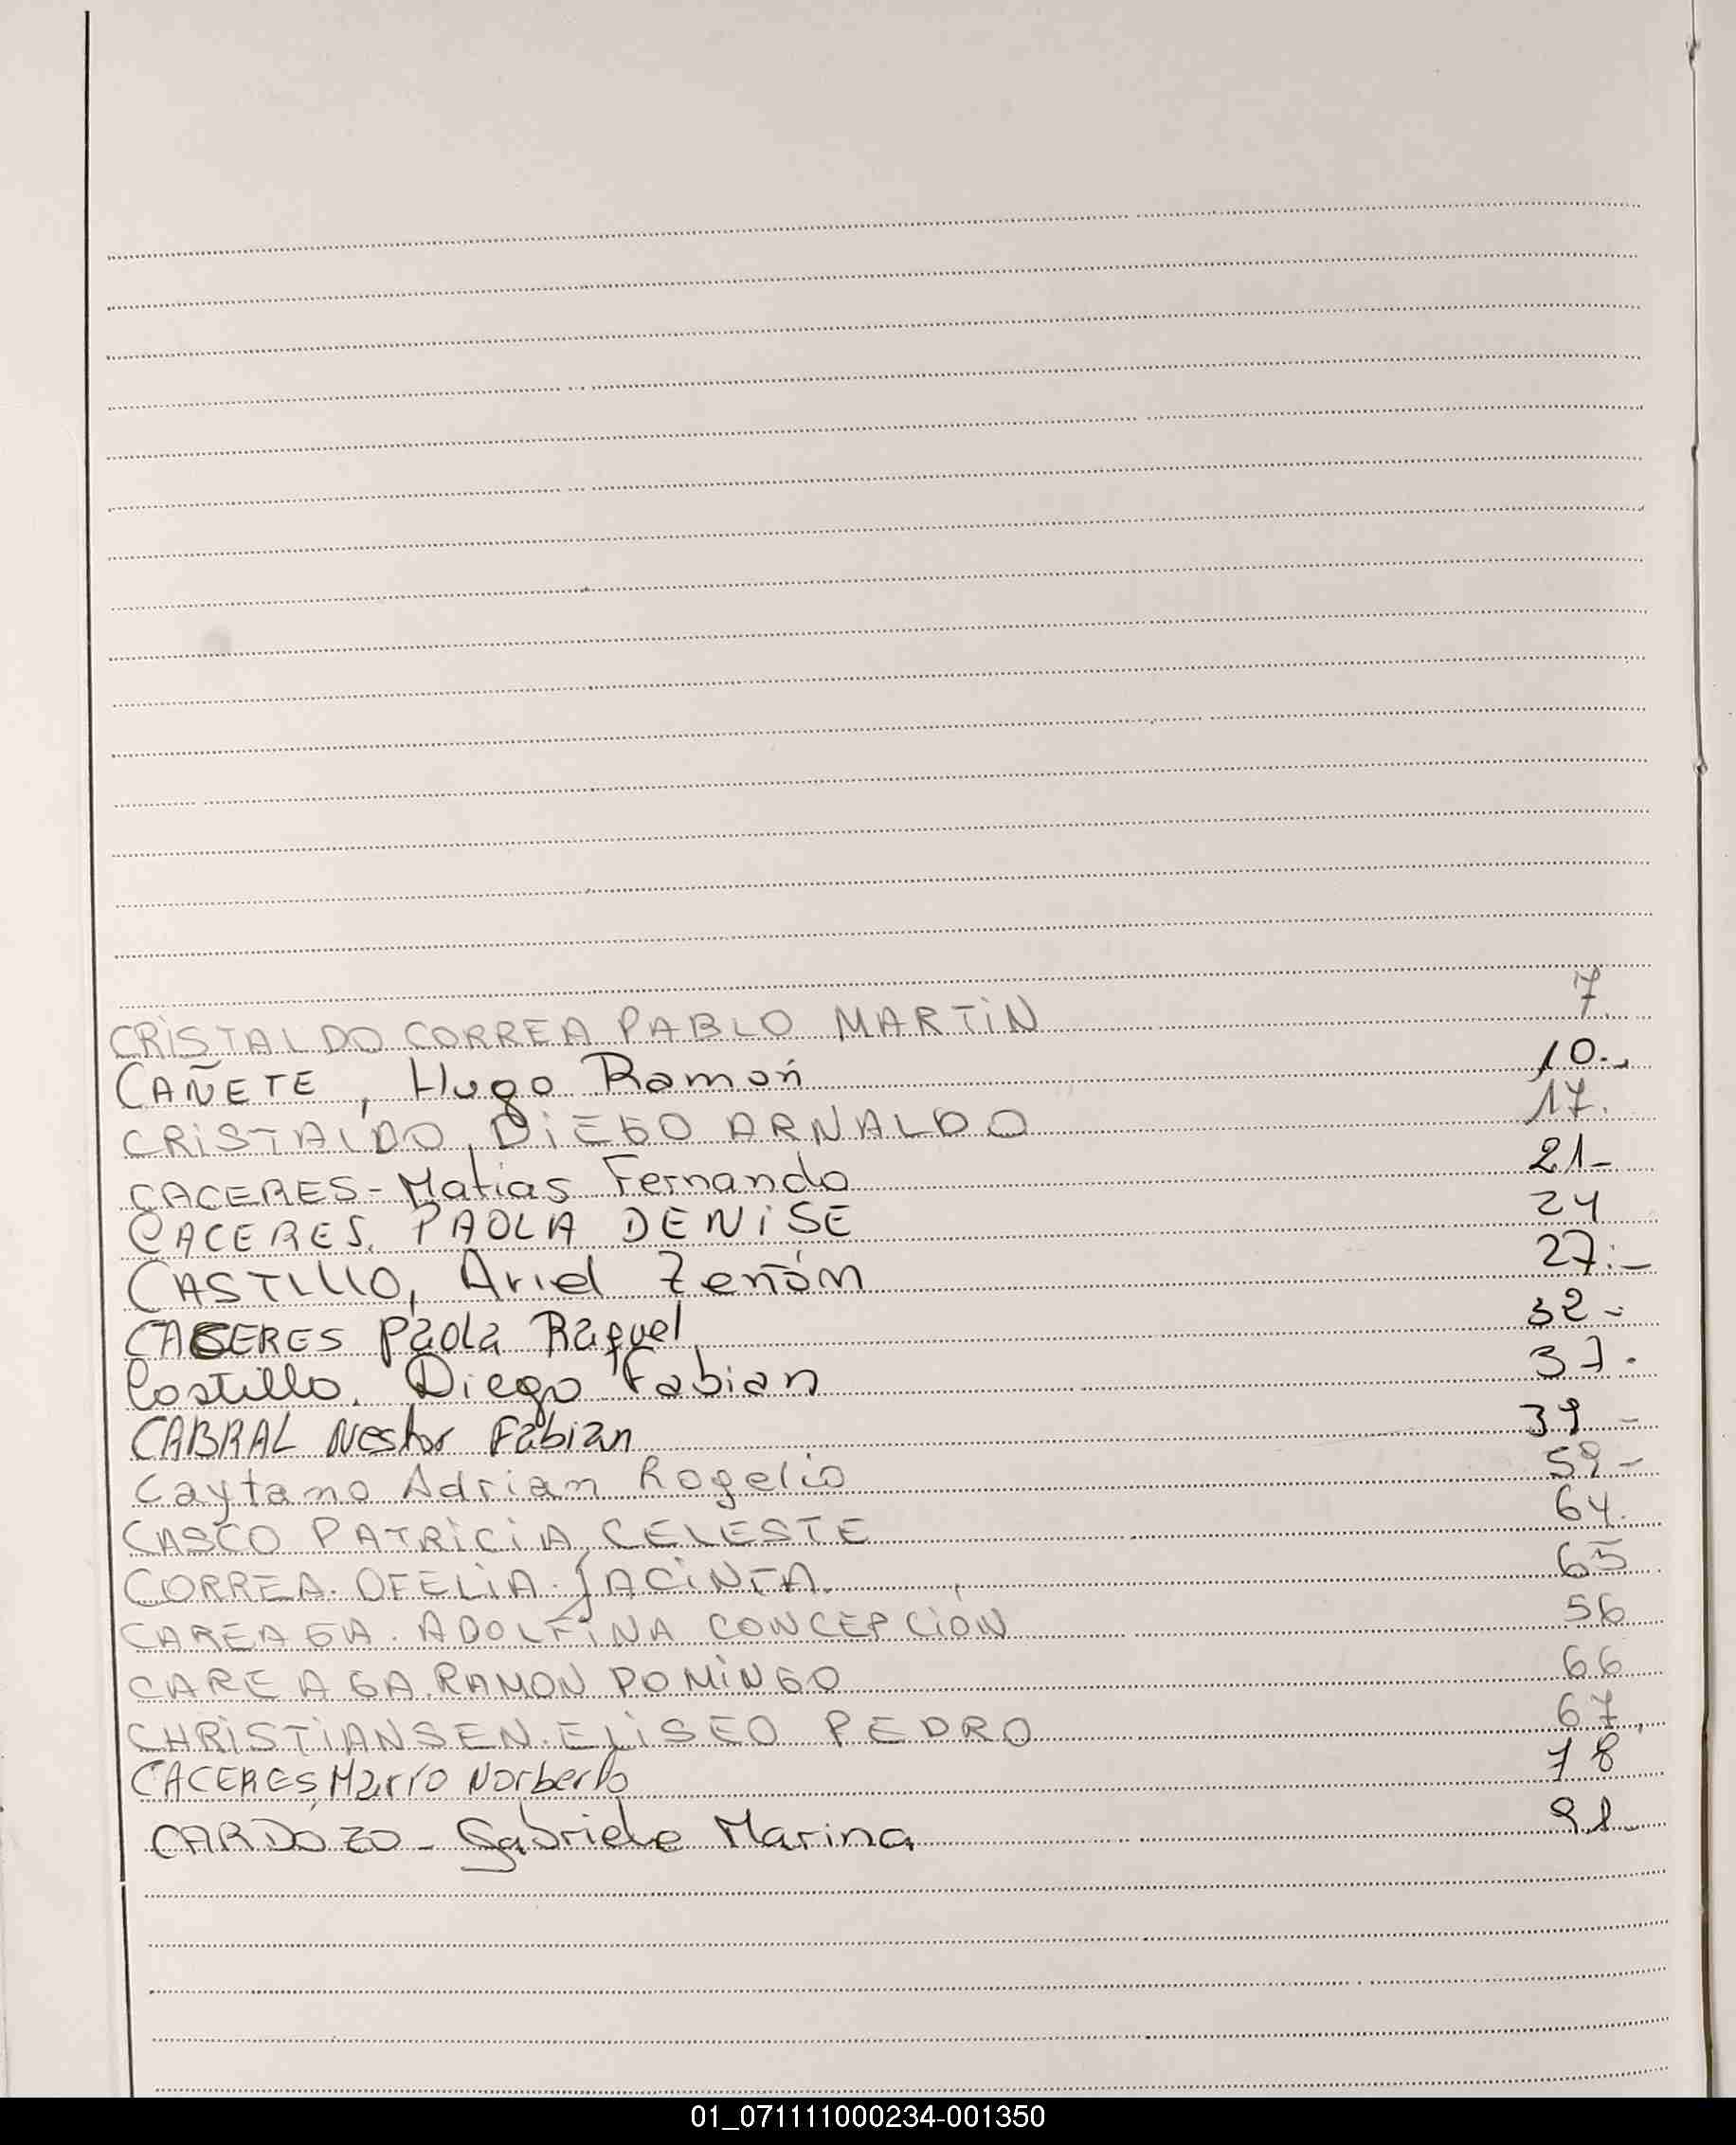 CRISTALDO CORREA PABLO MARTIN 7.
CAÑETE, Hugo Ramón 10.-
CRISTALDO, DIEGO ARNALDO 17.
CACERES - Matias Fernando 21-
CACERES. PAOLA DENISE 24
CASTILLO, Ariel Zenón 27.-
CACERES Paola Raquel 32-
Castillo, Diego Fabian 37.
CABRAL Nestor Fabian 39-
Caytano Adrian Rogelio 59-
CASCO PATRICIA CELESTE 64.
CORREA. OFELIA. JACINTA. 65
CAREAGA. ADOLFINA CONCEPCIÓN 56
CAREAGA. RAMON DOMINGO 66
CHRISTIANSEN. ELISEO PEDRO 67.
CACERES, Mario Norberto 78
CARDOZO - Gabriela Marina 91-
01_071111000234-001350